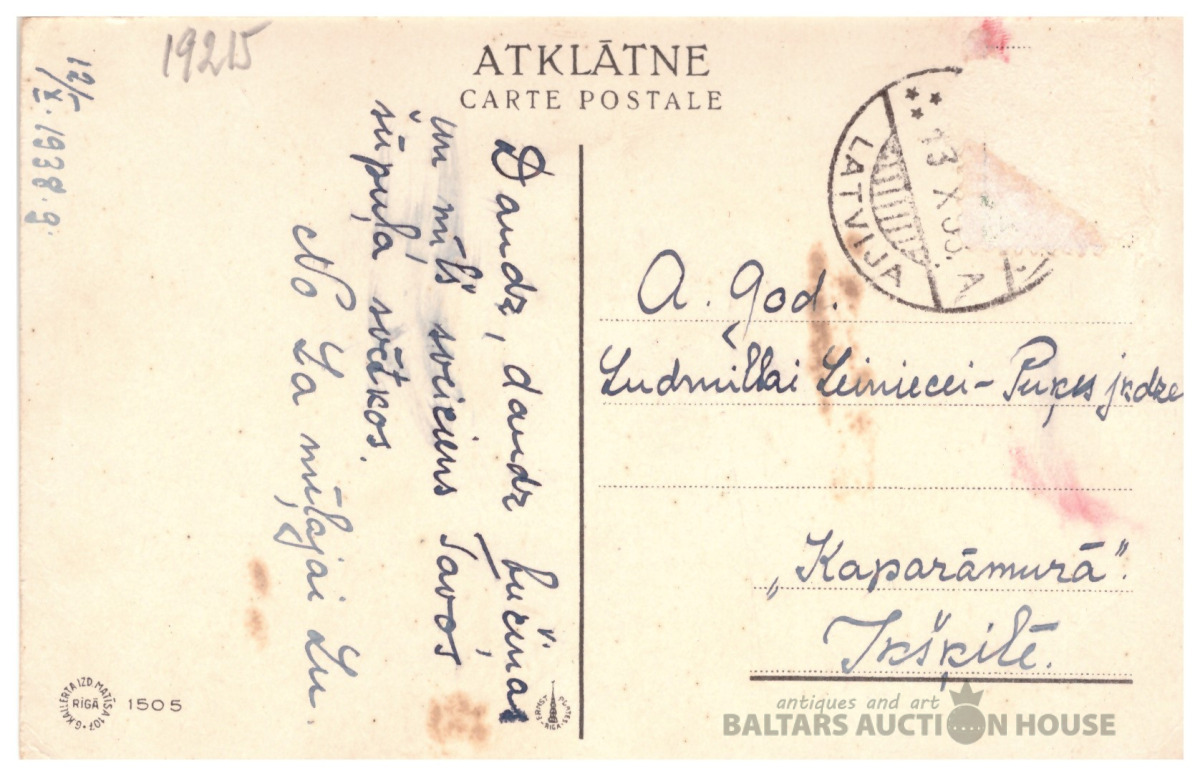 19215
12/X. 1938.g.
ATKLĀTNE
CARTE POSTALE
Daudz, daudz bučiņas
un mīļš sveiciens Tavos
šūpuļa svētkos.
No La mīļajai Lu.
LATVIJA
13 X 38. A
A. God.
Ludmillai Leiniecei-
jkdze
"Kaparāmurā".
Ikšķilē.
G. KALLERTA IZD. MATĪSA 107
RĪGĀ
1505
antiques and art
BALTARS AUCTION HOUSE